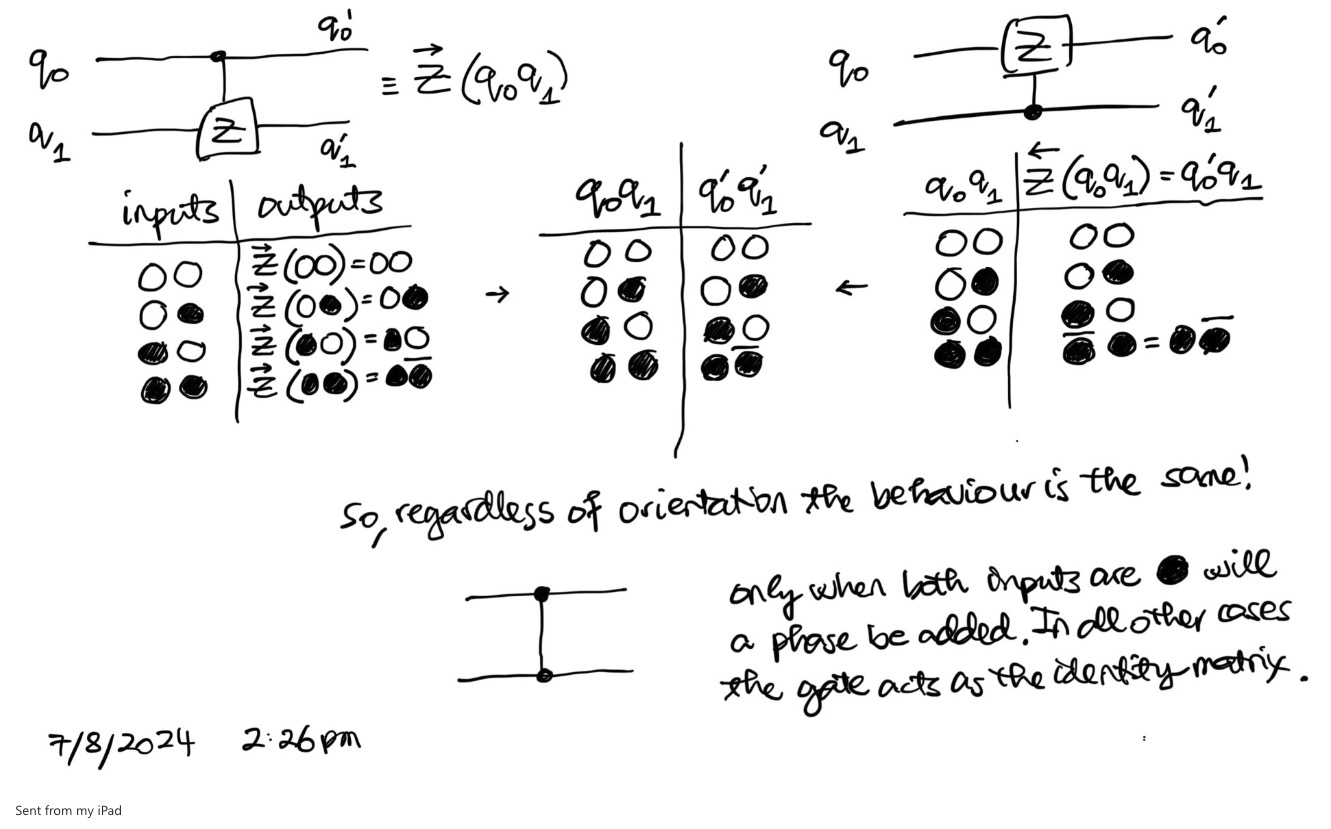 q₀ q₀' ≡ Z⃗(q₀q₁)
q₁ Z q₁'
q₀ Z q₀'
q₁ q₁'
inputs outputs
○○ Z⃗(○○)=○○
○● Z⃗(○●)=○●
●○ Z⃗(●○)=●○
●● Z⃗(●●)=●●̅
→
q₀q₁ q₀'q₁'
○○ ○○
○● ○●
●○ ●○
●● ●●̅
←
q₀q₁ Z⃖(q₀q₁)=q₀'q₁
○○ ○○
○● ○●
●○ ●○
●● ●̅●=●●̅
So, regardless of orientation the behaviour is the same!
only when both inputs are ● will
a phase be added. In all other cases
the gate acts as the identity matrix.
7/8/2024 2:26pm
Sent from my iPad